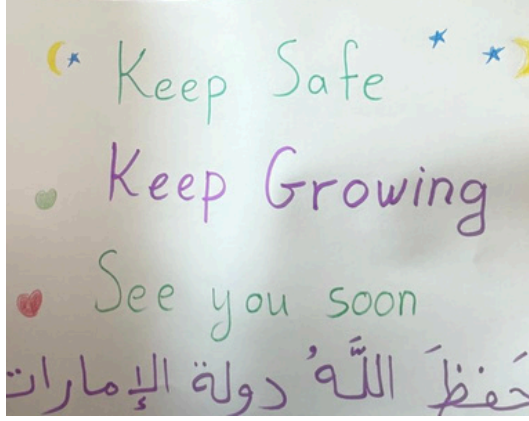 Keep Safe
Keep Growing
See you soon
حَفظَ اللَّهُ دولة الإمارات